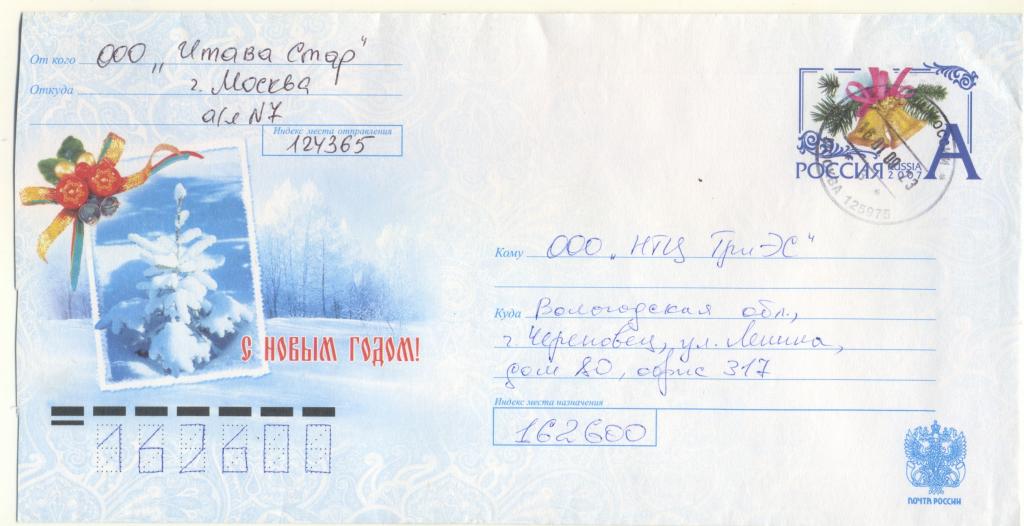 От кого ООО „Итава Стар"
Откуда г. Москва
а/я N7
Индекс места отправления
124365
РОССИЯ RUSSIA 2007 А
МОСКВА 125975
Кому ООО „НТЦ ТриЭС"
Куда Вологодская обл.,
г. Череповец, ул. Ленина,
дом 80, офис 317
Индекс места назначения
162600
С НОВЫМ ГОДОМ!
162600
ПОЧТА РОССИИ